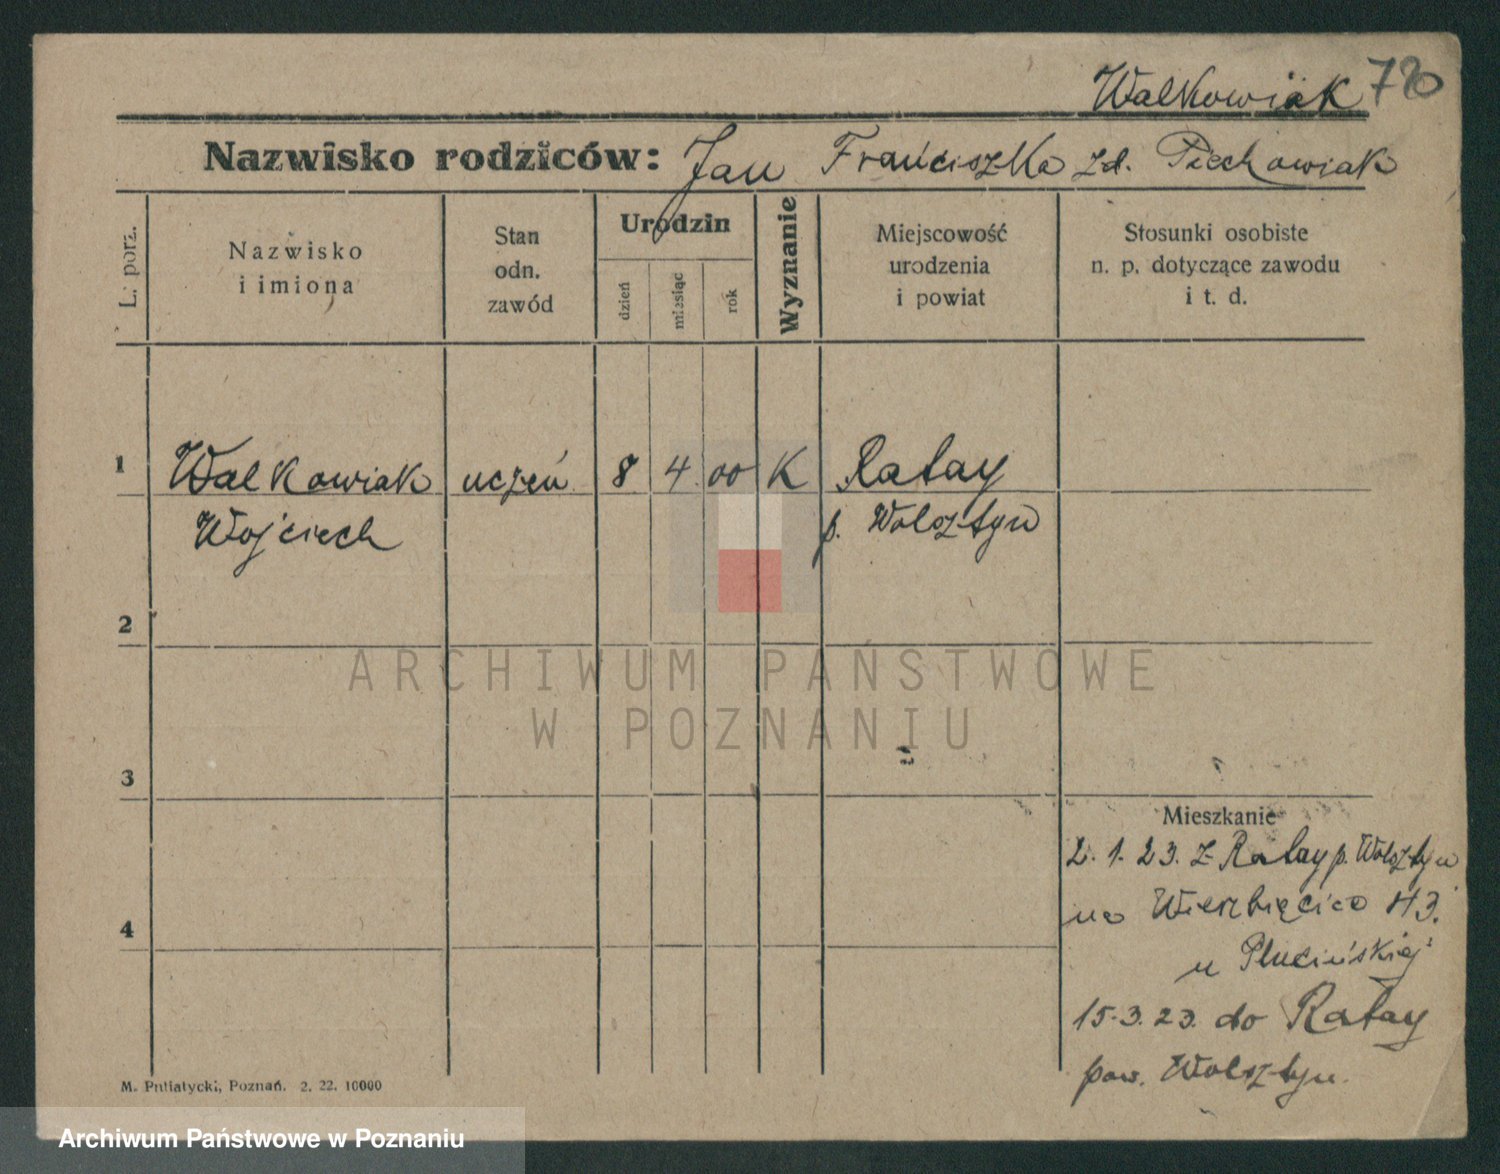 Walkowiak 720
Nazwisko rodziców: Jan Franciszka zd. Piechowiak
L. porz.
Nazwisko
i imiona
Stan
odn.
zawód
Urodzin
dzień
miesiąc
rok
Wyznanie
Miejscowość
urodzenia
i powiat
Stosunki osobiste
n. p. dotyczące zawodu
i t. d.
1 Walkowiak uczeń 8 4 00 K Ratay
Wojciech p. Wolsztyn
2
ARCHIWUM PAŃSTWOWE
W POZNANIU
3
Mieszkanie
2.1.23. z Ratay p. Wolsztyn
na Wierzbięcice 43.
4
u Plucińskiej
15.3.23. do Ratay
pow. Wolsztyn.
M. Putiatycki, Poznań. 2. 22. 10000
Archiwum Państwowe w Poznaniu